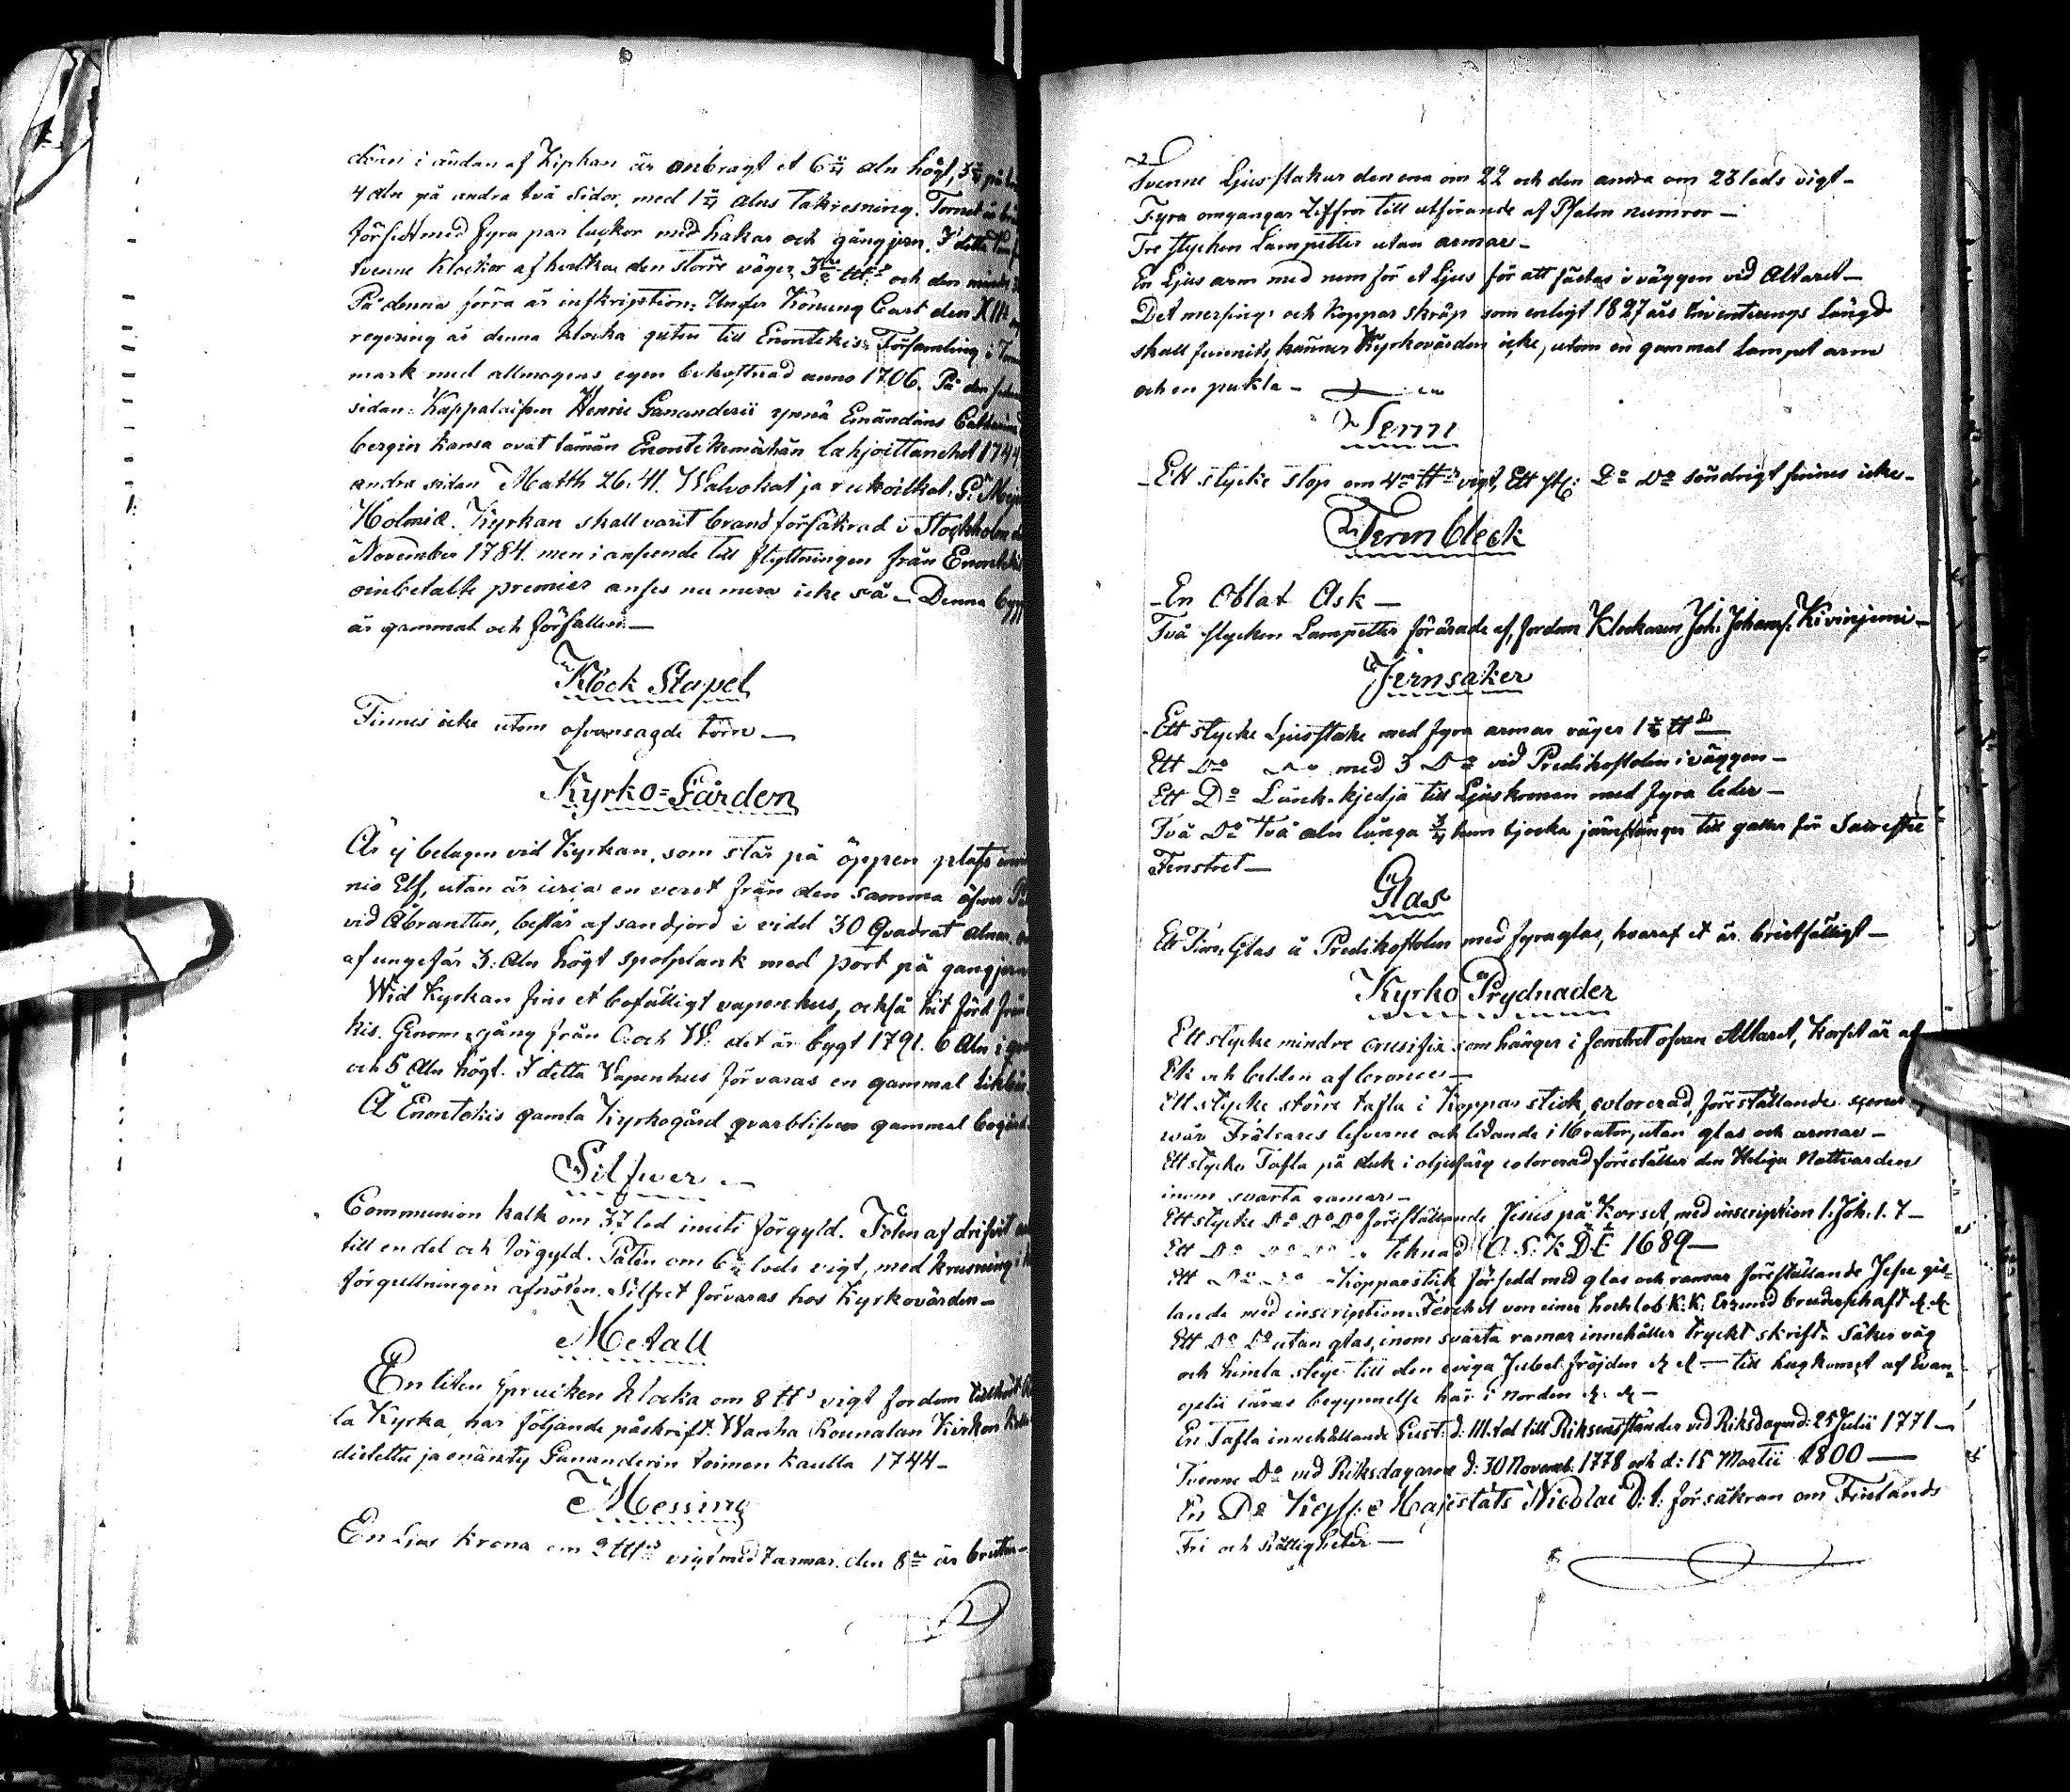 dörn i ändan af Kyrkan är anbragt et 6 1/4 aln högt,
4 aln på andra två sidor, med 1 1/4 alns takresning. Tornet är
försedt med fyra par luckor med hakar och gångjern. I detta
tvenne Klockor af hvilka den större väger 3 1/2 och den mindre
På denna förra är inskription: Under Konung Carl den XII:s
regering är denna klocka guten till Enontekis Församling i
mark med allmogens egen bekostnad anno 1706. På den
sidan: Kappalaisen Henric Gananderii ynnä Emändäns
bergin kansa ovat tämän Enontekemähän lahjoittanehet 1744
andra sidan Matth 26. 41. Walvokat ja rukoilkat. G. Meyer
Holmiæ. Kyrkan skall varit brandförsäkrad i Stockholm
November 1784. men i anseende till flyttningen från
oinbetalte premier anses nu mera icke så - Denna
är gammal och förfallen. -
Klock Stapel
Finnes icke utom ofvansagde torn -
Kyrko=Gården
Är ej belägen vid Kyrkan, som står på öppen plats
nio Elf, utan är en verst från den samma öfver
vid Åbranten, består af sandjord i vidd 30 Quadrat alnar
af ungefär 3. Aln högt spolplank med port på gangjern
Wid Kyrkan fins et bofälligt vapenhus, också hit förd från
kis. Genomgång från O. och W. det är bygt 1791. 6 Aln i
och 5 Aln högt. I detta Vapenhus förvaras en gammal likbår
Å Enontekis gamla Kyrkogård qvarblifven gammal
Silfwer -
Communion kalk om 37 lod inuti förgyld. Foten af drifvit
till en del och förgyld. Patén om 6 1/2 lods vigt, med krusning i
förgyllningen afnöten. Silfret förvaras hos Kyrkovärden -
Metall
En liten sprucken klocka om 8 ℔ vigt fordom tillhört
la Kyrka, har följande påskrift: Wanha Rounalan Kirkon
distettu ja enänsty Gananderin toimen kautta 1744 -
Messing
En Ljus Krona om 2 vigt med 7 armar, den 8de är bruten -
Tvenne Ljusstakar den ena om 22 och den andra om 23 lods vigt -
Fyra omgangar Ziffror till utförande af Psalm numror -
Tre stycken Lampetter utan armar -
En Ljus arm med rum för et Ljus för att fästas i väggen vid Altaret -
Det mersings och Koppar skräp som enligt 1827 års Inventerings Längd
skall funnits, känner Kyrkovärden icke, utom en gammal Lampet arm
och en pukla -
Tenn
- Ett stycke stop om 4 ℔ vigt, Ett st: Do Do söndrigt finnes icke -
Tenn bleck
- En Oblat Ask -
Två stycken Lampetter förärade af fordom Klockaren Joh. Johanss. Kivinjemi -
Jernsaker
- Ett stycke Ljusstake med fyra armar väger 1 1/2 ℔ -
Ett Do Do med 3 Do vid Predikostolen i väggen -
Ett Do Länck-kjedja till Ljuskronan med fyra leder -
Två Do Två aln långa 3/4 tum tjocka järnstänger till galler för Sacristie
Fenstret -
Glas
Ett Tim Glas å Predikostolen med fyra glas, hvaraf et är bristfälligt -
Kyrko Prydnader
Ett stycke mindre crusifix som hänger i fenstret ofvan Altaret, Korset är af
Ek och bilden af bronce -
Ett stycke större tafla i Koppar stick, colorerad föreställande
wår Frälsares lefverne och lidande i 16 rutor, utan glas och armar -
Ett stycke Tafla på duk i oljefärg colorerad föreställer den Heliga Nattvarden
inom svarta ramar -
Ett stycke Do Do Do föreställande Jesus på Korset, med inscription 1. Joh. 1. 7 -
Ett Do Do Do teknad O. S. K D E 1689 -
Ett Do Do Kopparstick försedd med glas och ramar föreställande Jesu
lande med inscription von einer hochlob K: K: bruderschaft &. &.
Ett Do Do utan glas, inom svarta ramar innehåller tryckt skrift: Säker väg
och himla stege till den eviga Jubel fröjden & & - till hugkomst af Evan-
gelii läras begynnelse här i Norden &. & -
En Tafla innehållande Gust: d: III. tal till Riksens ständer vid Riksdagen d: 25 Julii 1771 -
Tvenne Do vid Riksdagarne d: 30 Novemb. 1778 och d: 15 Martii 1800 -
En Do Kejs: e Majestäts Nicolai D: 1: försäkran om Finlands
Fri och Rättigheter -